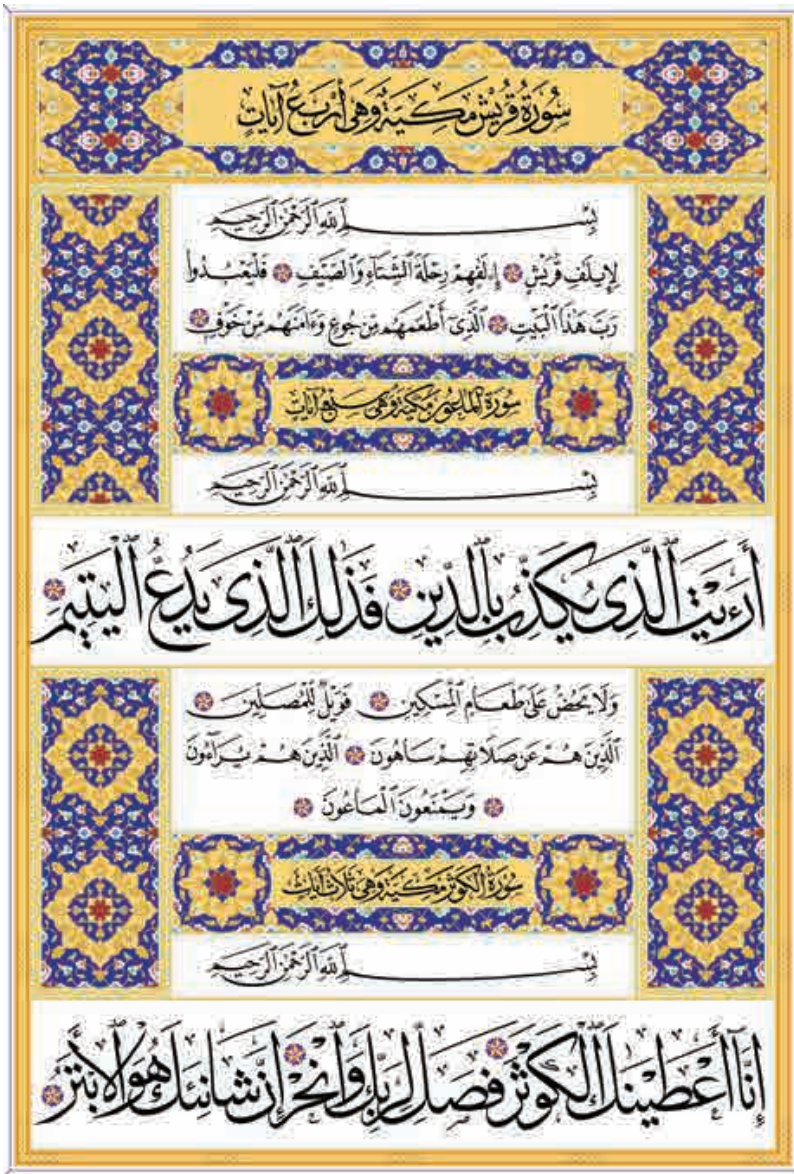 سُورَةُ قُرَيْشٍ مَكِّيَّةٌ وَهِىَ أَرْبَعُ آيَاتٍ
بِسْمِ ٱللَّهِ ٱلرَّحْمَٰنِ ٱلرَّحِيمِ
لِإِيلَٰفِ قُرَيْشٍ إِۦلَٰفِهِمْ رِحْلَةَ ٱلشِّتَآءِ وَٱلصَّيْفِ فَلْيَعْبُدُوا۟
رَبَّ هَٰذَا ٱلْبَيْتِ ٱلَّذِىٓ أَطْعَمَهُم مِّن جُوعٍ وَءَامَنَهُم مِّنْ خَوْفٍۭ
سُورَةُ ٱلْمَاعُونِ مَكِّيَّةٌ وَهِىَ سَبْعُ آيَاتٍ
بِسْمِ ٱللَّهِ ٱلرَّحْمَٰنِ ٱلرَّحِيمِ
أَرَءَيْتَ ٱلَّذِى يُكَذِّبُ بِٱلدِّينِ فَذَٰلِكَ ٱلَّذِى يَدُعُّ ٱلْيَتِيمَ
وَلَا يَحُضُّ عَلَىٰ طَعَامِ ٱلْمِسْكِينِ فَوَيْلٌ لِّلْمُصَلِّينَ
ٱلَّذِينَ هُمْ عَن صَلَاتِهِمْ سَاهُونَ ٱلَّذِينَ هُمْ يُرَآءُونَ
وَيَمْنَعُونَ ٱلْمَاعُونَ
سُورَةُ ٱلْكَوْثَرِ مَكِّيَّةٌ وَهِىَ ثَلَاثُ آيَاتٍ
بِسْمِ ٱللَّهِ ٱلرَّحْمَٰنِ ٱلرَّحِيمِ
إِنَّآ أَعْطَيْنَٰكَ ٱلْكَوْثَرَ فَصَلِّ لِرَبِّكَ وَٱنْحَرْ إِنَّ شَانِئَكَ هُوَ ٱلْأَبْتَرُ